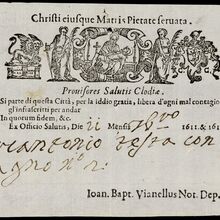 Christi eiusque Matris Pietate seruata.
Prouisores Salutis Clodiæ.
Si parte di questa Città, per la iddio gratia, libera d'ogni mal contagio
gl'infrascritti per andar
In quorum fidem, &c.
Ex Officio Salutis, Die 11 Mensis 1611. & 1
Franc.antonio testa con
Ioan. Bapt. Vianellus Not. Dep.